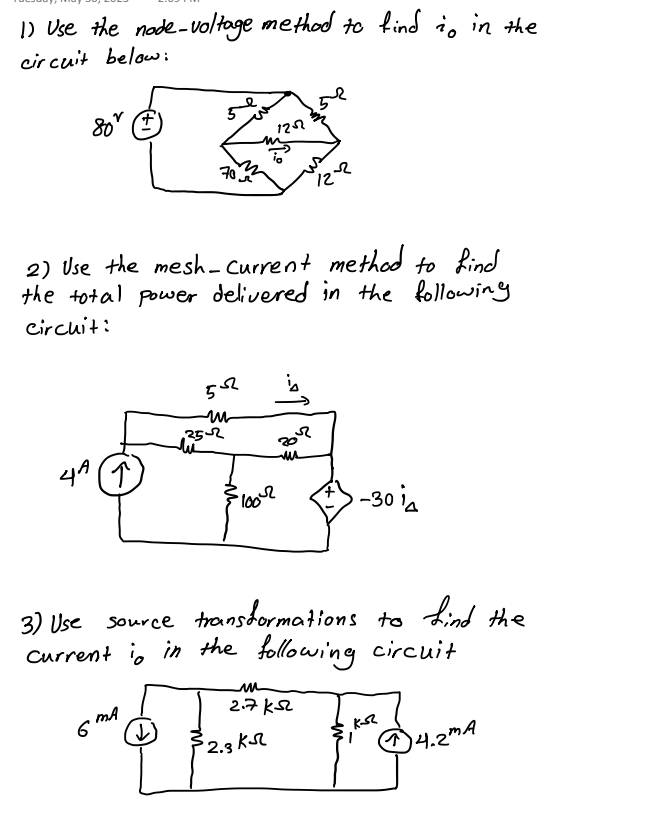 1) Use the node-voltage method to find i₀ in the
circuit below:
80ᵛ
5Ω
5Ω
12Ω
i₀
70Ω
12Ω
2) Use the mesh-current method to find
the total power delivered in the following
circuit:
5Ω
iΔ
25Ω
20Ω
4ᴬ
100Ω
-30 iΔ
3) Use source transformations to find the
current i₀ in the following circuit
2.7 KΩ
6 mA
2.3 KΩ
1 KΩ
4.2 mA